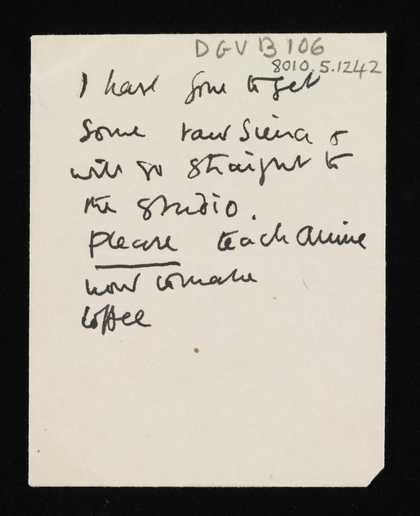 DGV B 106
8010.5.1242
I have gone to get
some raw Siena &
will go straight to
the studio.
Please teach Annie
how to make
coffee